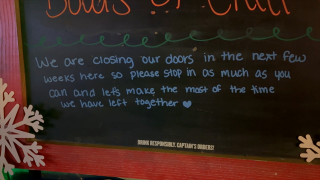 Bowls of Chili
We are closing our doors in the next few
weeks here so please stop in as much as you
can and let's make the most of the time
we have left together
DRINK RESPONSIBLY. CAPTAIN'S ORDERS!